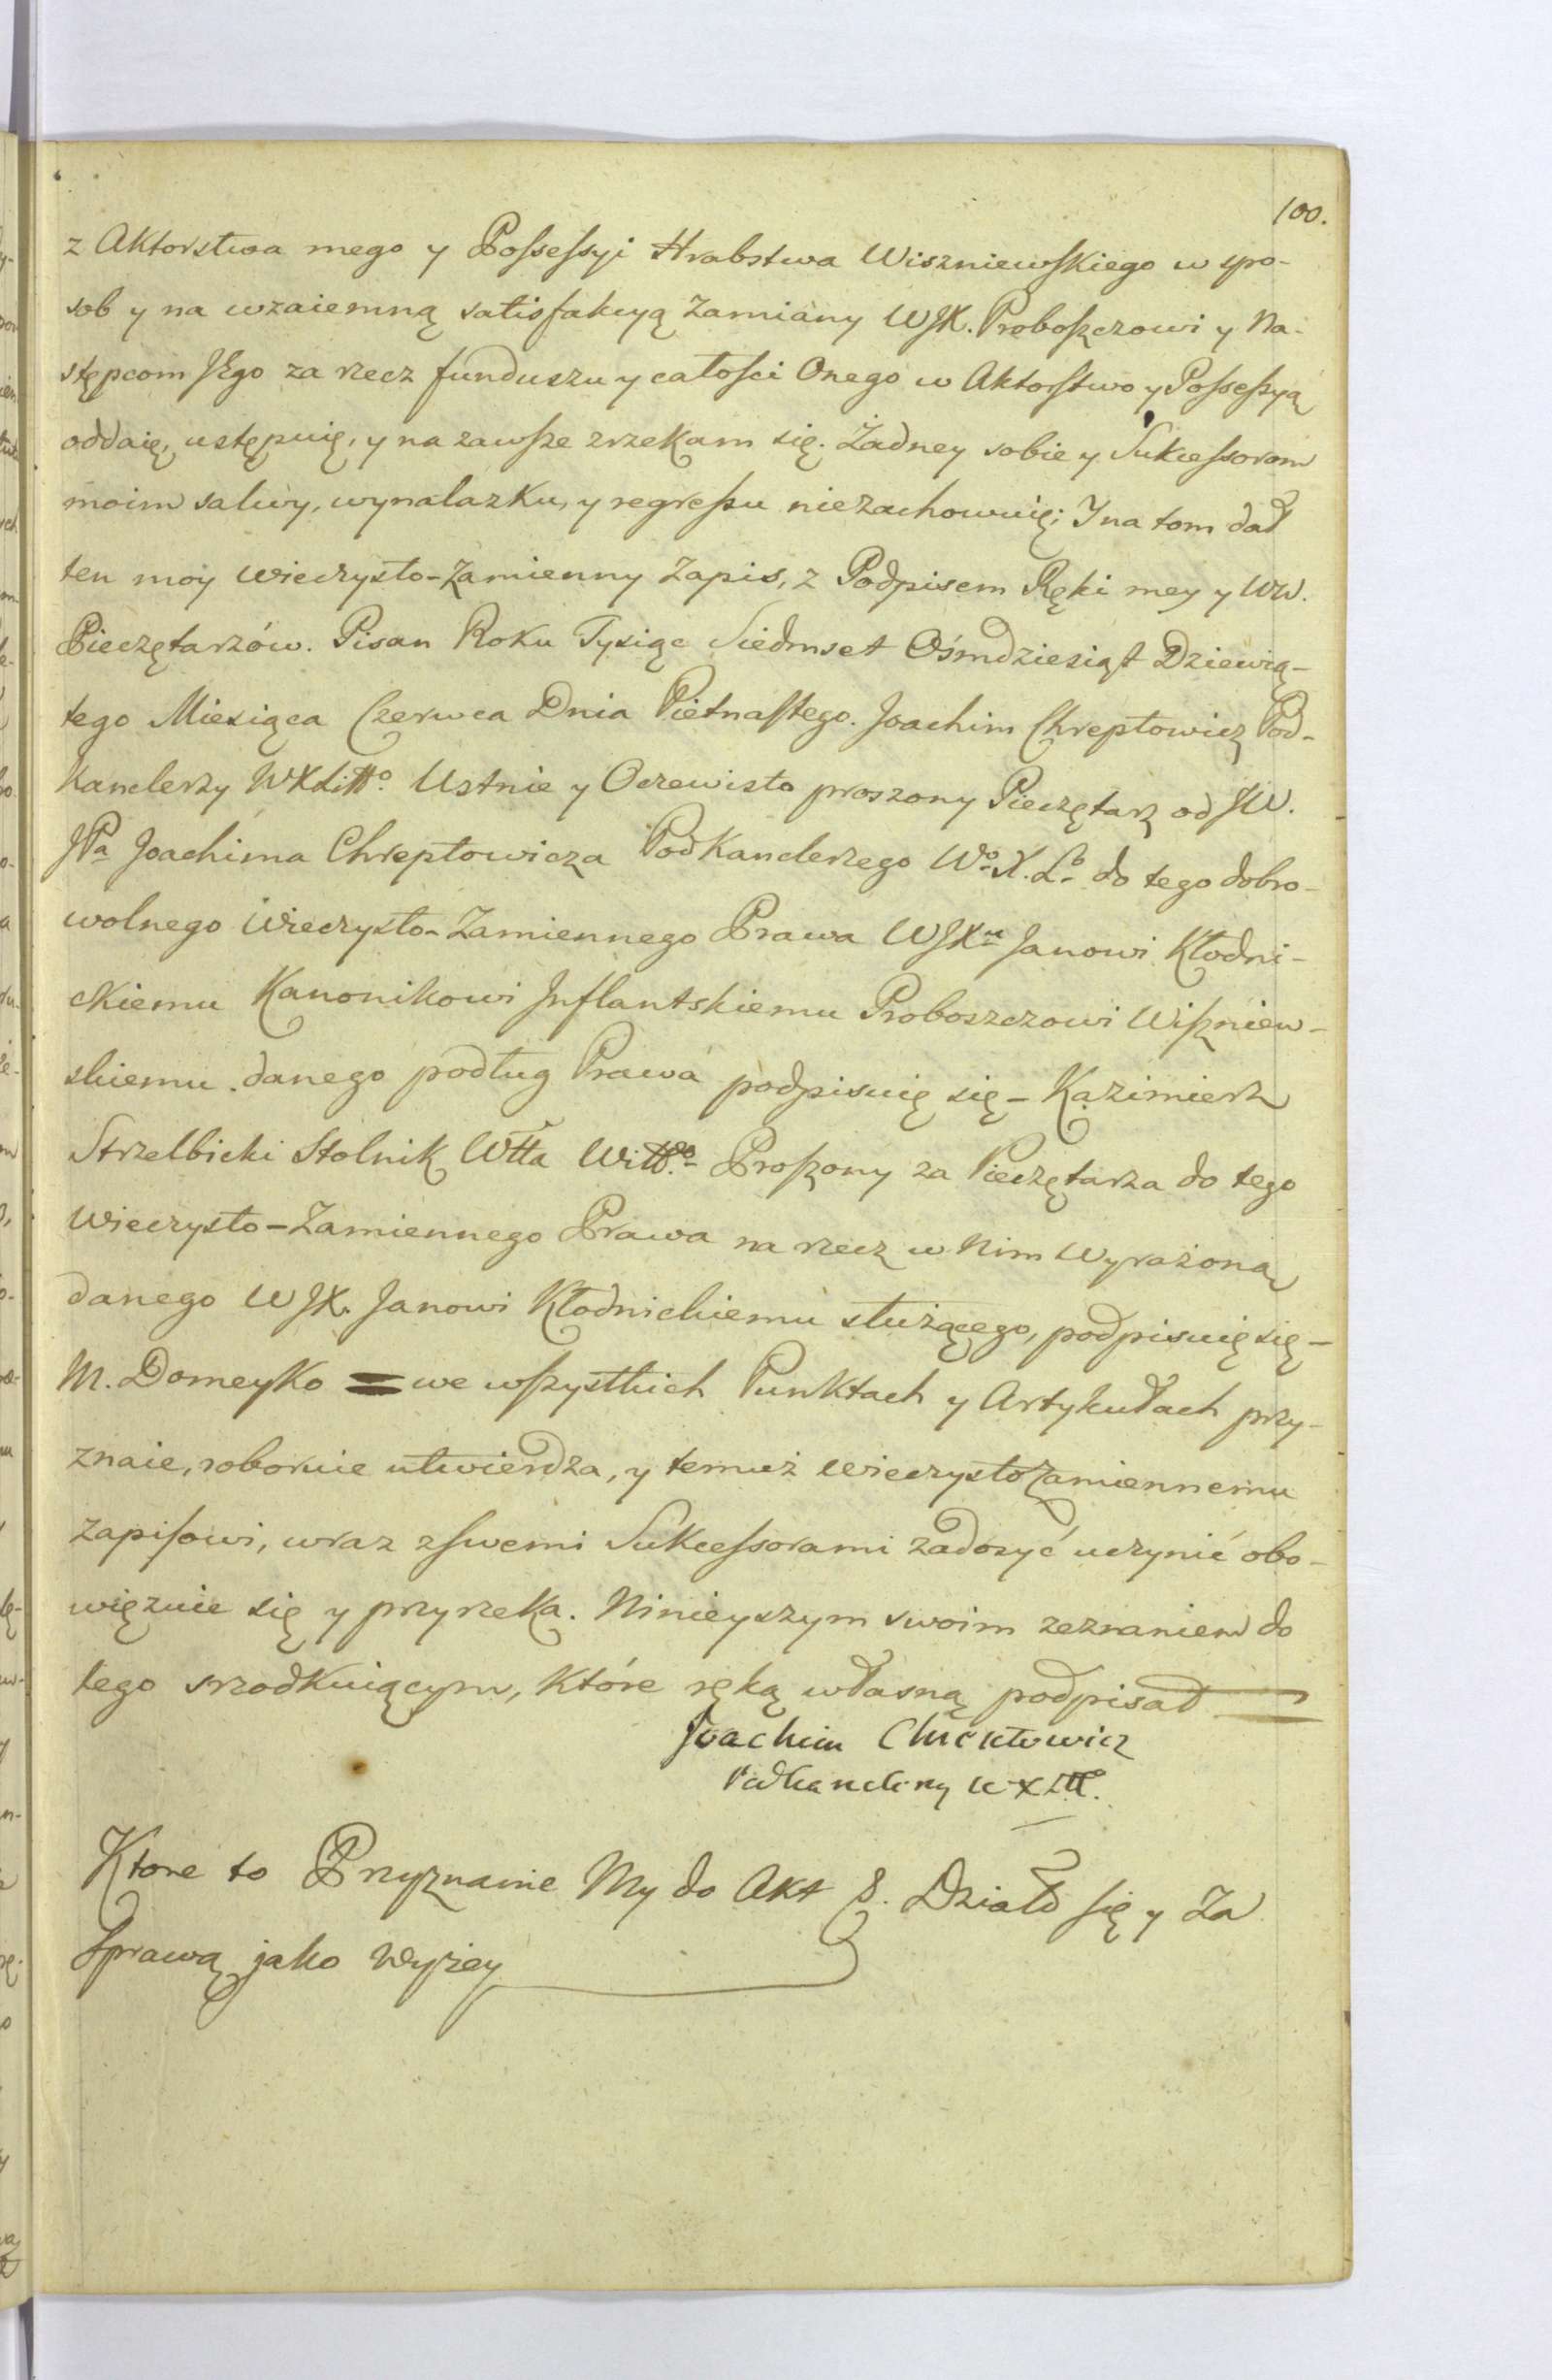 100.
z Aktorstwa mego y Possessyi Hrabstwa Wiszniewskiego w spo-
sob y na wzaiemną satisfakcyą Zamiany WJX. Proboszczowi y Na-
stępcom JEgo za rzecz funduszu y całości Onego w Aktorstwo y Possessyą
oddaię, ustępuię, y na zawsze zrzekam się. Żadney sobie y Sukcessorom
moim salwy, wynalazku, y regressu niezachowuię; Y na tom dał
ten moy wieczysto-Zamienny Zapis, z Podpisem Ręki mey y WW.
Pieczętarzów. Pisan Roku Tysiąc Siedmset Ośmdziesiąt Dziewią-
tego Miesiąca Czerwca Dnia Pietnastego. Joachim Chreptowicz Pod-
kanclerzy WXLitto. Ustnie y Oczewisto proszony Pieczętarz od JW.
JPa Joachima Chreptowicza Podkanclerzego Wo. X. Lo do tego dobro-
wolnego Wieczysto-Zamiennego Prawa WJXu Janowi Kłodni-
ckiemu Kanonikowi Jnflantskiemu Proboszczowi Wiszniew-
skiemu danego podług Prawa podpisuię się - Kazimierz
Strzelbicki Stolnik Wtta Witto. Proszony za Pieczętarza do tego
Wieczysto-Zamiennego Prawa na rzecz w Nim Wyrażoną
danego WJX. Janowi Kłodnickiemu służącego, podpisuię się -
M. Domeyko = we wszystkich Punktach y Artykułach przy-
znaie, roboruie utwierdza, y temuż wieczysto Zamiennemu
Zapisowi, wraz z swemi Sukcessorami zadosyć uczynić obo-
więzuie się y przyrzeka. Ninieyszym swoim zeznaniem do
tego srzodkuiącym, które ręką własną podpisał
Joachim Chreptowicz
Podkanclerzy WXLitt.
Ktore to Przyznanie My do Akt S. Działo się y Za
Sprawą jako wyżey